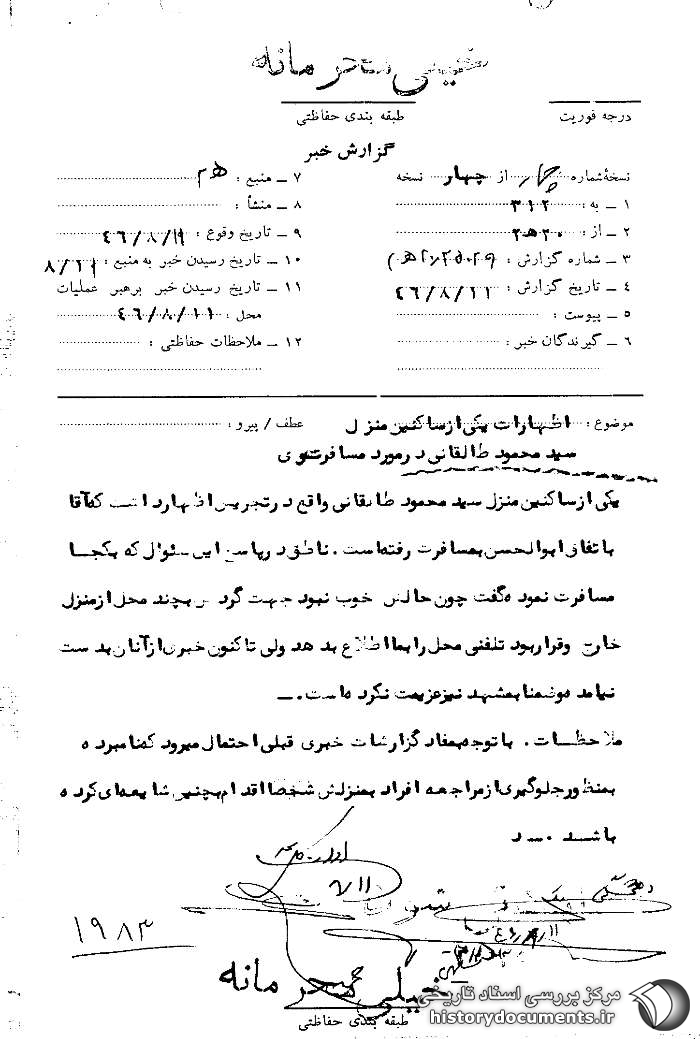 خیلی محرمانه
درجه فوریت
طبقه بندی حفاظتی
گزارش خبر
نسخهٔ شماره چهار از چهار نسخه
۱ ـ به : ۳۱۲
۲ ـ از : ۲۰ ه ۲
۳ ـ شماره گزارش :
۴ ـ تاریخ گزارش : ۴۶/۸/۱۱
۵ ـ پیوست :
۶ ـ گیرندگان خبر :
۷ ـ منبع :
۸ ـ منشأ :
۹ ـ تاریخ وقوع :
۱۰ ـ تاریخ رسیدن خبر به منبع :
۱۱ ـ تاریخ رسیدن خبر برهبر عملیات
محل : ۴۶/۸/۱۱
۱۲ ـ ملاحظات حفاظتی :
موضوع : اظهارات یکی از ساکنین منزل
عطف / پیرو :
سید محمود طالقانی در مورد مسافرت وی
یکی از ساکنین منزل سید محمود طالقانی واقع در تجریش اظهار داشت که آقا
باتفاق ابوالحسن بمسافرت رفته است . ناطق در پاسخ این سئوال که بکجا
مسافرت نموده گفت چون حالش خوب نبود جهت گردش بچند محل از منزل
خارج و قرار بود تلفنی محل را بما اطلاع بدهد ولی تاکنون خبری از آنان بدست
نیامده و ضمنا بمشهد نیز عزیمت نکرده است . ـ
ملاحظات . با توجه بمفاد گزارشات خبری قبلی احتمال میرود که نامبرده
بمنظور جلوگیری از مراجعه افراد بمنزلش شخصا اقدام بچنین شایعه‌ای کرده
باشد .
۱۹۸۳
خیلی محرمانه
طبقه بندی حفاظتی
مرکز بررسی اسناد تاریخی
historydocuments.ir